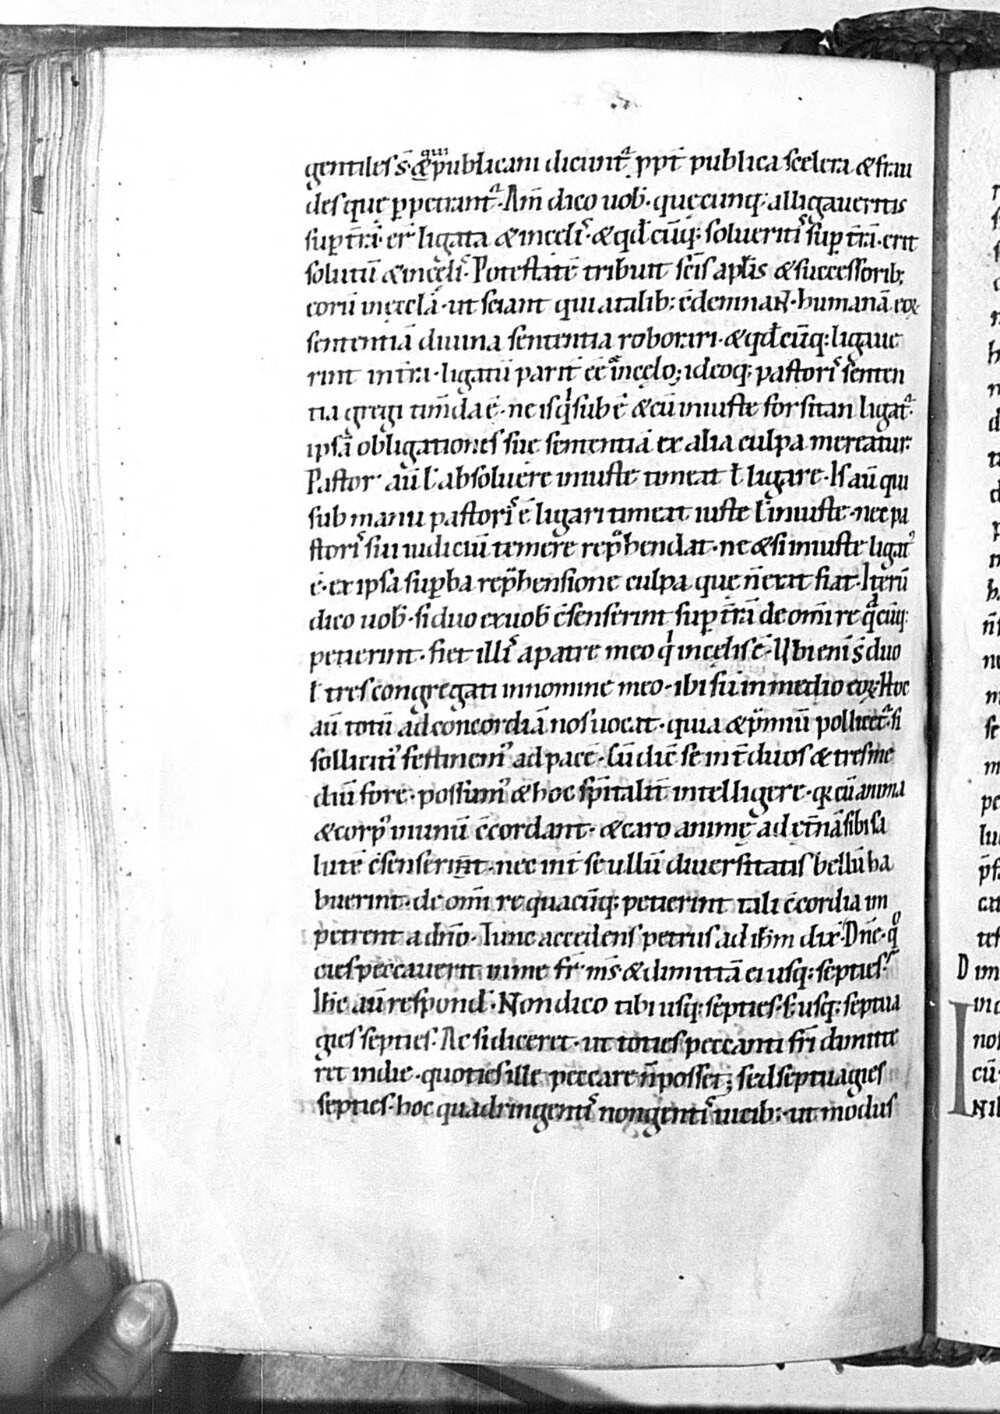 gentiles s̄· & qui publicani dicunt᷑ ppt̄ publica scelera & frau
des que ꝑpetrant᷑· Am̄ dico uob̄· quęcunq; alligaueritis
sup t̄rā· er̄ ligata & in celi᷒· & qd̄cūq; solueriti᷒ sup t̄rā· erit
solutū & in cęli᷒· Potestatē tribuit sc̄is apl̄is & successorib;
eorū in ęcclā· ut sciant qui a talib; c̄demnant᷑· humanā eoꝝ
sententiā diuina sententia roborari· & qd̄cūq; ligaue
rint in t̄ra· ligatū parit̄ ēē & in cęlo; ideoq; pastori᷒ senten
tia gregi tim̄da ē· ne is qͥ sub ē & cū iniuste forsitan ligat᷑·
ipsā obligationes sue sententiā ex alia culpa mereatur·
Pastor aū ł absoluere iniuste timeat ł ligare· Is aū qui
sub manu pastori᷒ ē ligari timeat iuste ł iniuste· nec pa
stori᷒ sui iudiciū temere rep̄hendat· ne & si iniuste ligat᷒
ē· ex ipsa supba rep̄hensione culpa que n̄ erat fiat· Iterū
dico uob̄· si duo ex uob̄ c̄senserint sup t̄rā de om̄i re quācūq;
petierint· fiet illi᷒ a patre meo qͥ in cęlis ē· Ubi eni s̄ duo
ł tres congregati in nomine meo· ibi sū in medio eoꝝ· Hoc
aū totū ad concordiā nos uocat· quia & p̄miū pollicet᷑· si
solliciti᷒ festinem᷒ ad pacē· Cū dic̄ se int̄ duos & tres me
diū fore· possum᷒ & hoc sp̄italit̄ intelligere· qꝛ cū anima
& corp᷒ in unū c̄cordant· & caro animę ad et̄nā sibi sa
lutē c̄senserint· nec int̄ se ullū diuersitatis bellū ha
buerint· de om̄i re quacūq; petierint tali c̄cordia im
petrent a dn̄o· Tunc accedens petrus ad ih̄m dix̄· Dn̄e· qͦ
cies peccauerit in me fr̄ m̄s & dimittā ei usq; septies·
Ih̄c aū respond̄· Non dico tibi usq; septies· s; usq; septua
gies septies· Ac si diceret· ut toties peccanti fr̄i dimitte
ret in die· quoties ille peccare n̄ posset; sed septuagies
septies· hoc quadringenti᷒ nongenti᷒ uicib;· ut modus